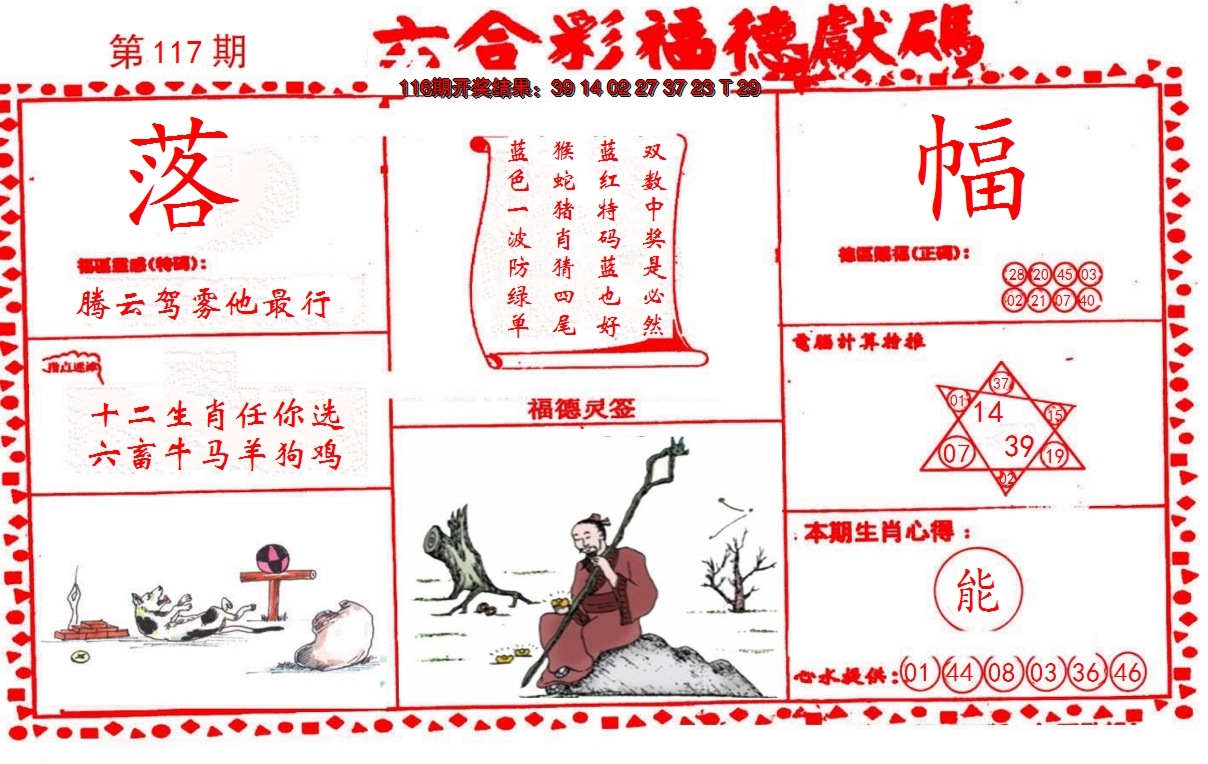 第117期
六合彩福德獻碼
116期开奖结果：39 14 02 27 37 23 T 29
落
福區靈感(特碼)：
腾云驾雾他最行
指点迷津
十二生肖任你选
六畜牛马羊狗鸡
双数中奖是必然
蓝红特码蓝也好
猴蛇猪肖猜四尾
蓝色一波防绿单
福德灵签
幅
德區賜福(正碼)：
28 20 45 03
02 21 07 40
電腦計算推
37
01 14 15
07 39 19
02
本期生肖心得：
能
心水提供：01 44 08 03 36 46